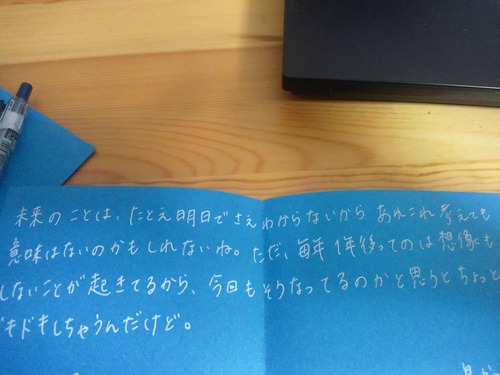 未来のことは、たとえ明日でさえわからないから あれこれ考えても
意味はないのかもしれないね。ただ、毎年1年後ってのは想像も
しないことが起きてるから、今回もそうなってるのかと思うとちょっと
ドキドキしちゃうんだけど。